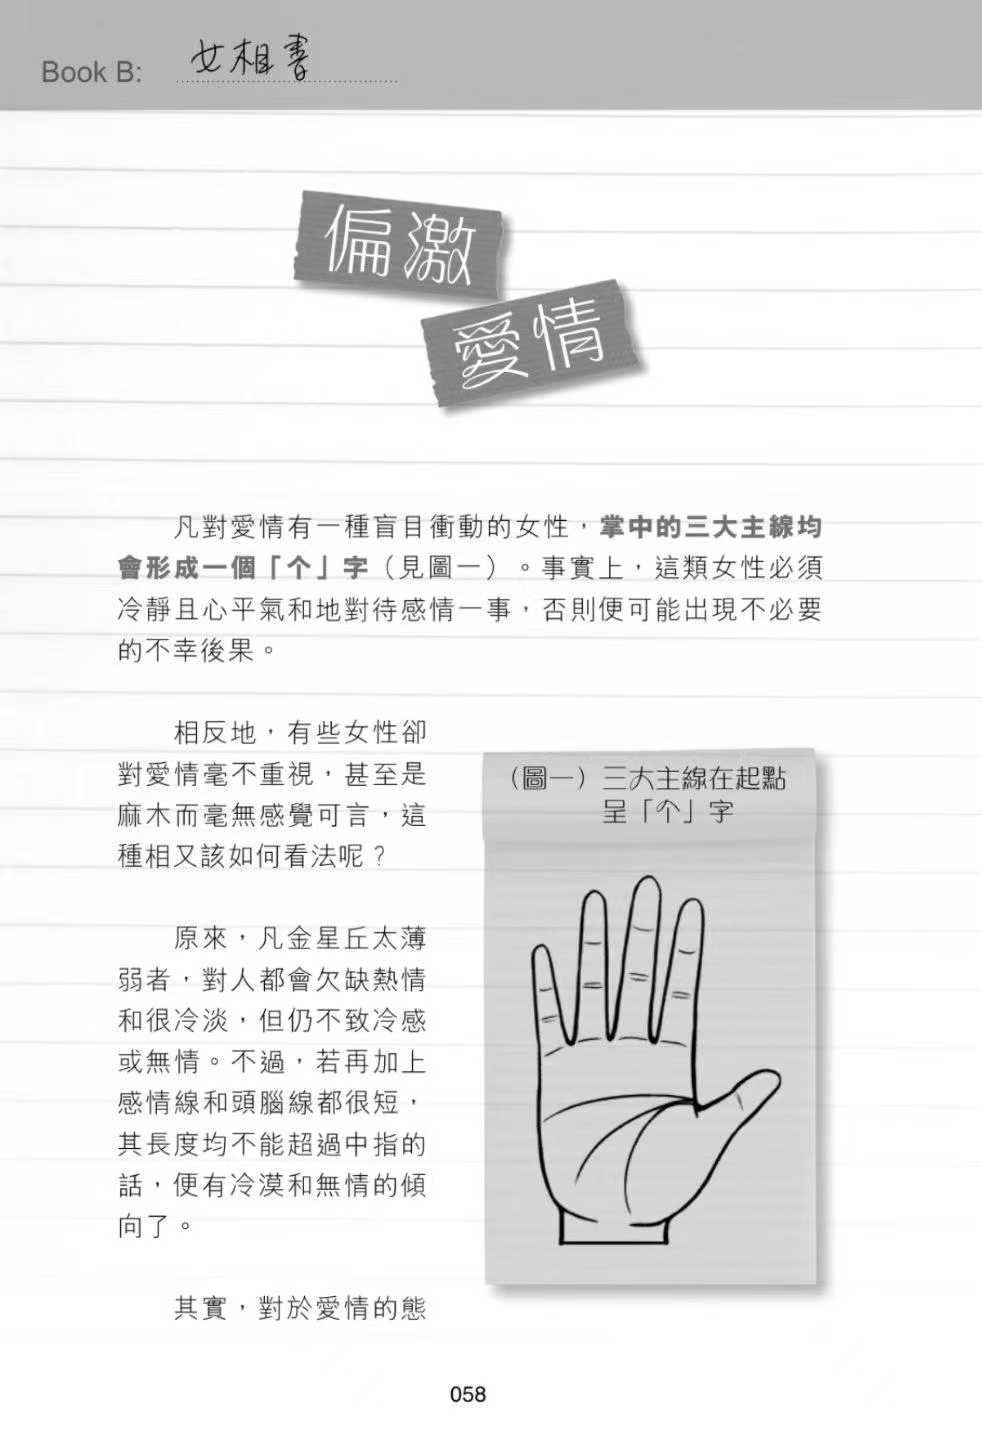 Book B: 女相書
偏激
愛情
凡對愛情有一種盲目衝動的女性，掌中的三大主線均
會形成一個「个」字（見圖一）。事實上，這類女性必須
冷靜且心平氣和地對待感情一事，否則便可能出現不必要
的不幸後果。
相反地，有些女性卻
對愛情毫不重視，甚至是
麻木而毫無感覺可言，這
種相又該如何看法呢？
原來，凡金星丘太薄
弱者，對人都會欠缺熱情
和很冷淡，但仍不致冷感
或無情。不過，若再加上
感情線和頭腦線都很短，
其長度均不能超過中指的
話，便有冷漠和無情的傾
向了。
其實，對於愛情的態
（圖一）三大主線在起點
呈「个」字
058